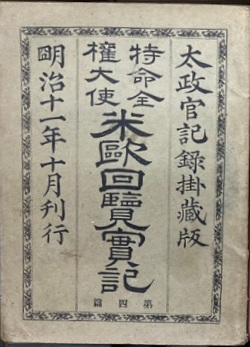 太政官記録掛藏版
特命全
權大使
米歐回覽實記
明治十一年十月刊行
第四篇